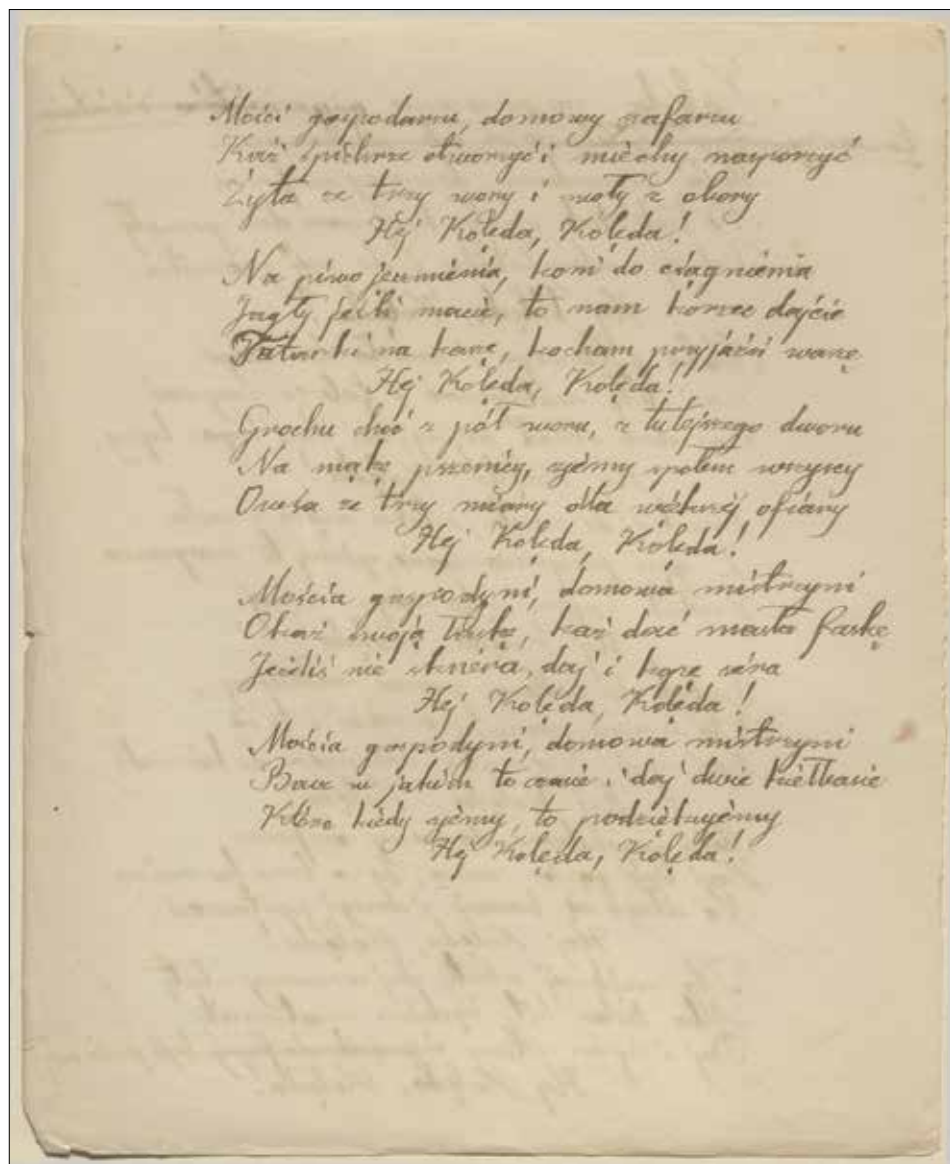 Mości gospodarzu, domowy szafarzu
Każ spichrze otworzyć i miechy naporzyć
Żyta ze trzy wory i woły z obory
Hej Kolęda, Kolęda!
Na piwo jęczmienia, koni do ciągnienia
Jagły jeśli macie, to nam korzec dajcie
Tatarki na kaszę, kocham przyjaźń waszę
Hej Kolęda, Kolęda!
Grochu choć z pół woru, z tutejszego dworu
Na mąkę pszenicy, zjémy społem wszyscy
Owsa ze trzy miary dla większéj ofiary
Hej Kolęda, Kolęda!
Mościa gospodyni, domowa mistrzyni
Okaż swoją łaskę, każ dać masła faskę
Jeżeliś nie sknéra, daj i kopę séra
Hej Kolęda, Kolęda!
Mościa gospodyni, domowa mistrzyni
w jakim to czasie i daj dwie kiełbasie
Które kiedy zjémy, to podziękujémy
Hej Kolęda, Kolęda!